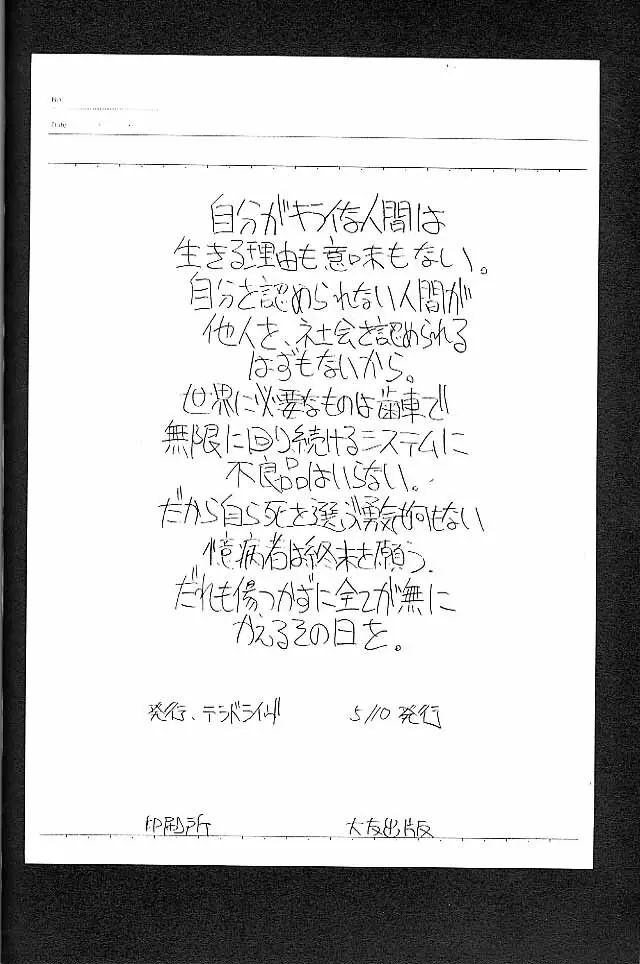 No
Date
自分がキライな人間は
生きる理由も意味もない。
自分を認められない人間が
他人を、社会を認められる
はずもないから。
世界に必要なものは歯車で
無限に回り続けるシステムに
不良品はいらない。
だから自ら死を選ぶ勇気も何もない
憶病者は終末を願う。
だれも傷つかずに全てが無に
かえるその日を。
発行、テラドライヴ 5/10 発行
印刷所 大友出版